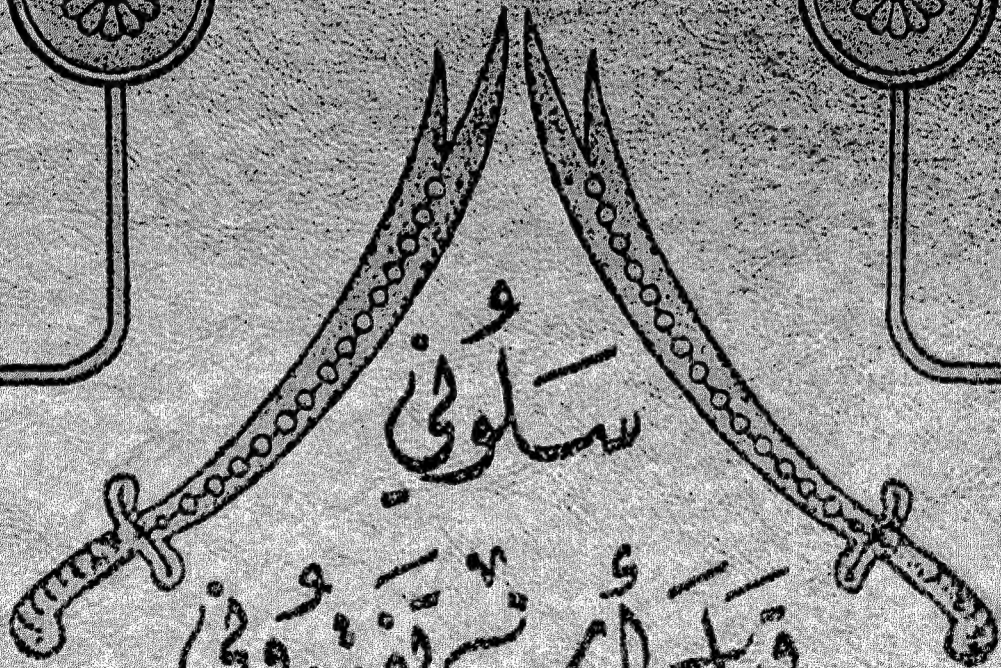 سَلُوني
قَبلَ أَنْ تَفقِدُوني